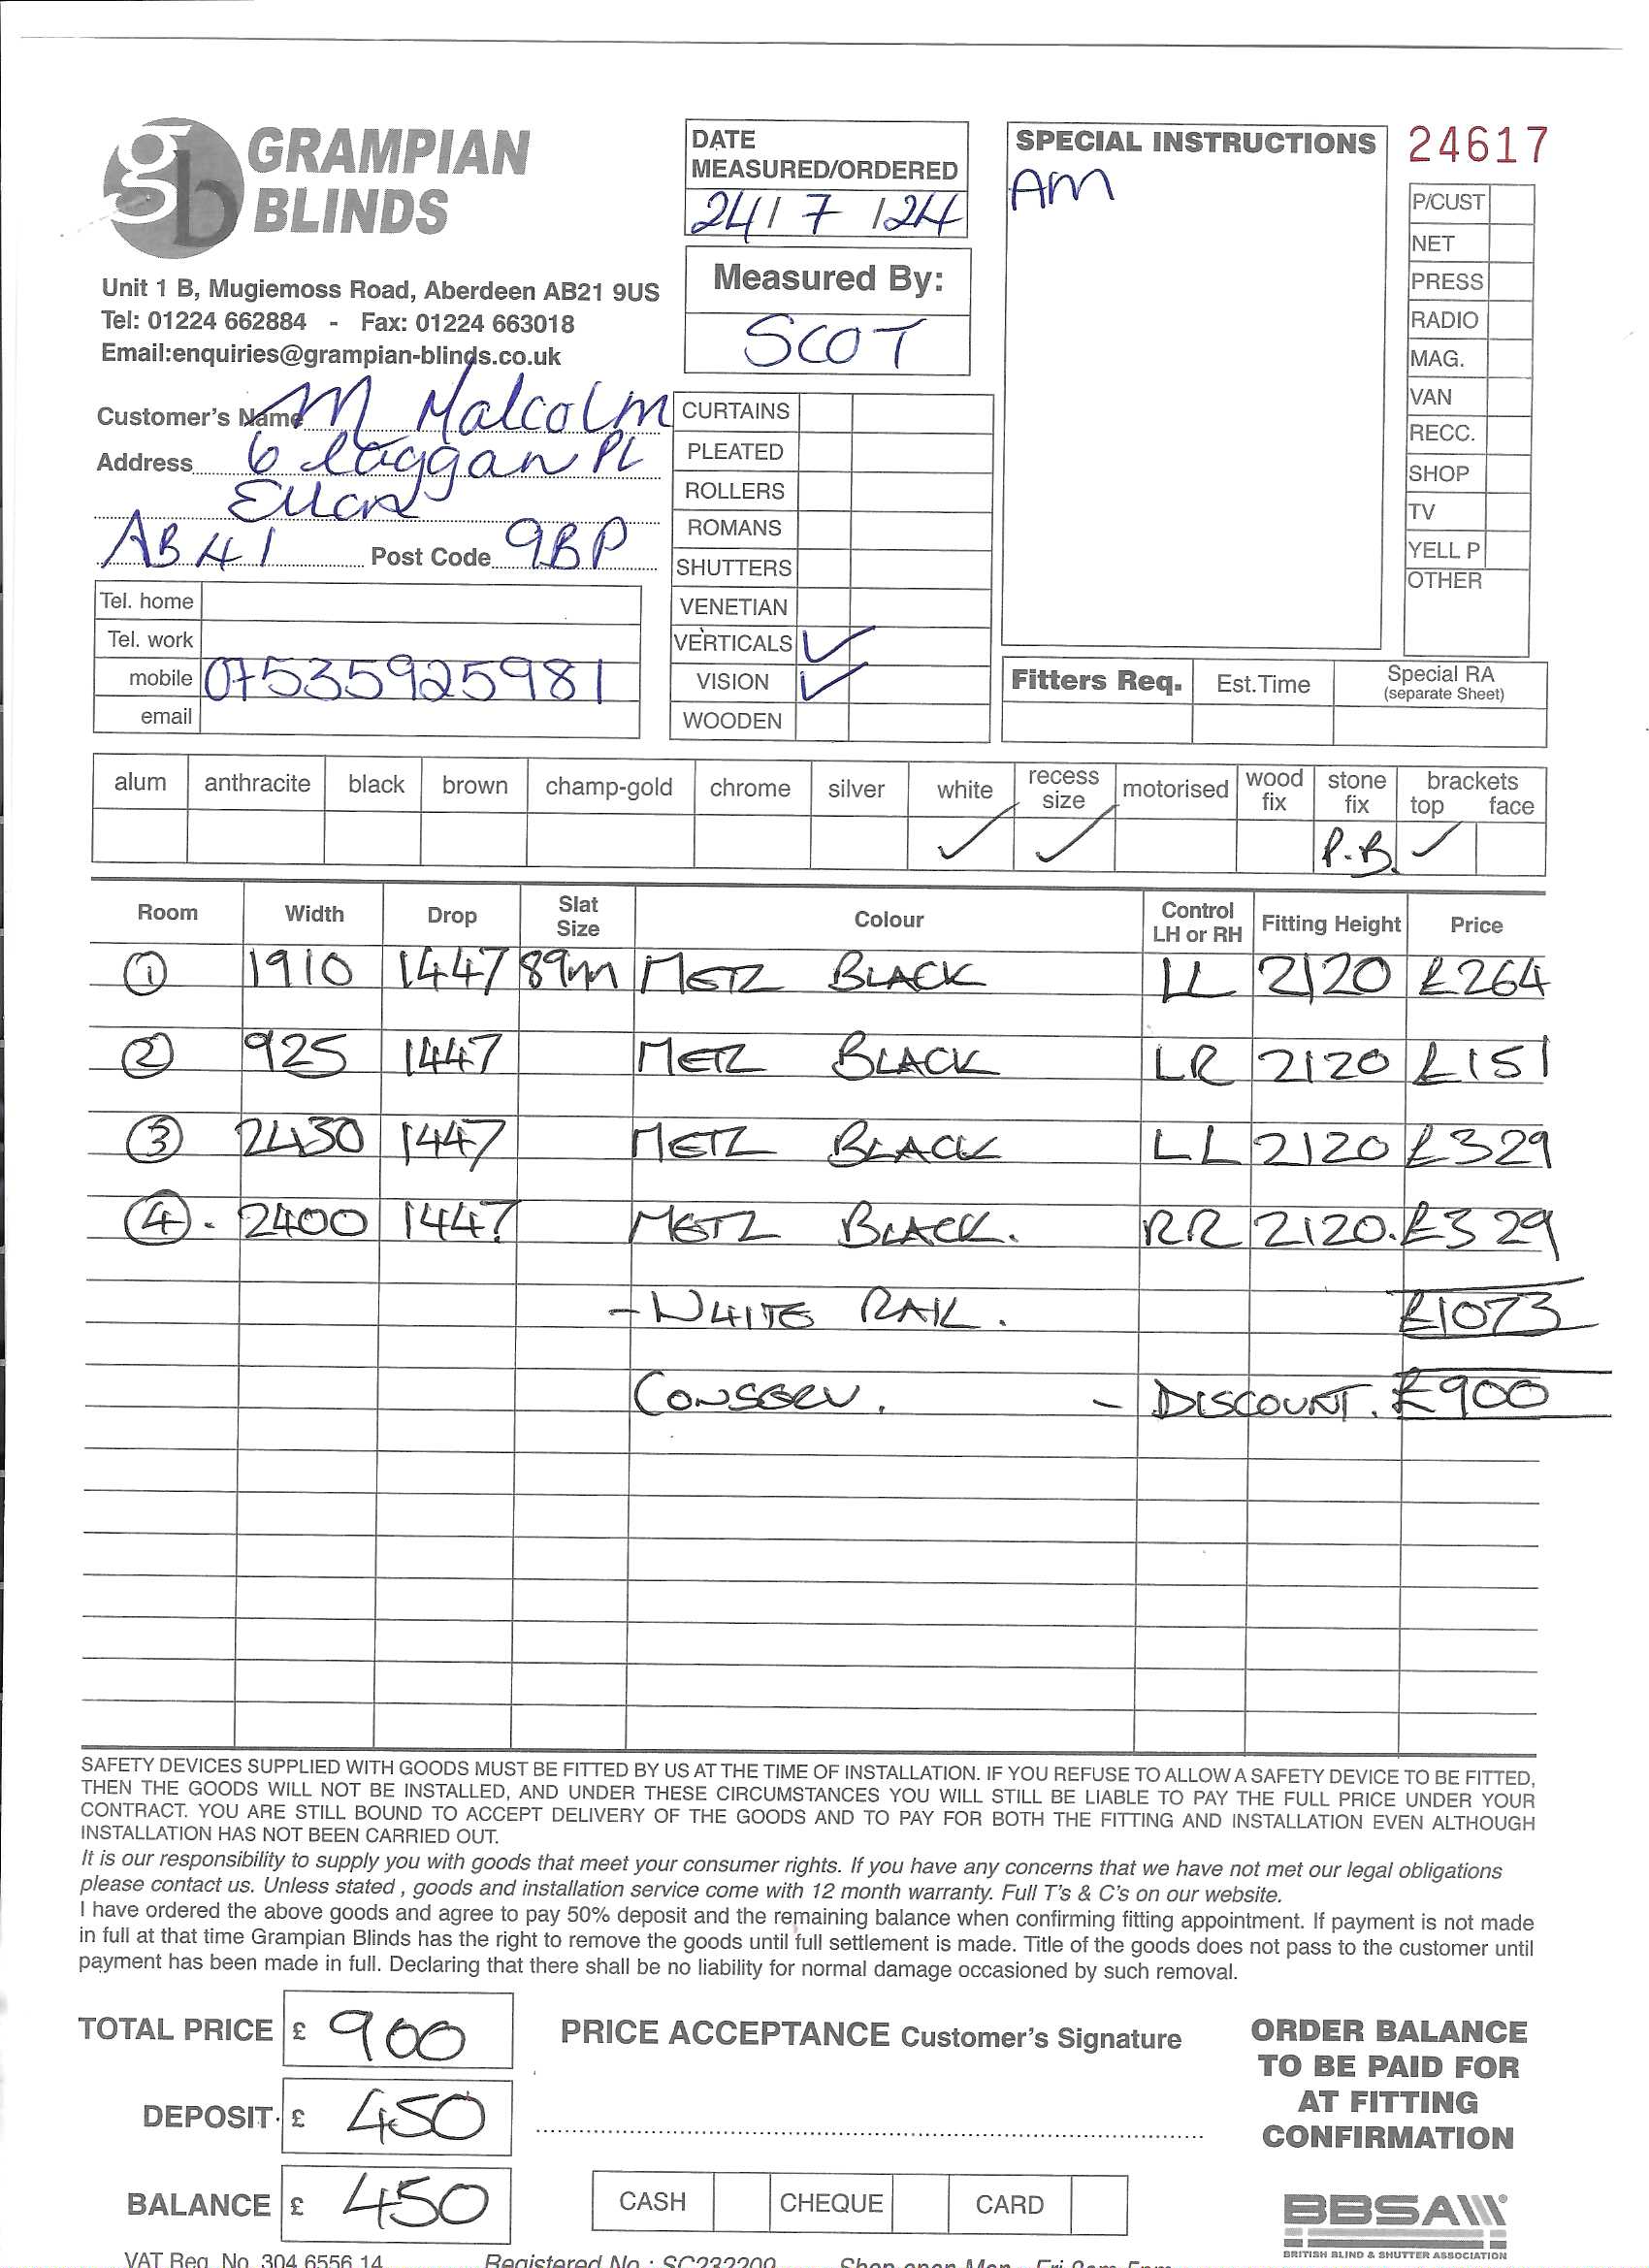 GRAMPIAN BLINDS
DATE MEASURED/ORDERED
24/7/24
SPECIAL INSTRUCTIONS
AM
24617
Unit 1 B, Mugiemoss Road, Aberdeen AB21 9US
Tel: 01224 662884 - Fax: 01224 663018
Email:enquiries@grampian-blinds.co.uk
Measured By:
SCOT
P/CUST
NET
PRESS
RADIO
MAG.
VAN
RECC.
SHOP
TV
YELL P
OTHER
Customer's Name M Malcolm
Address 6 laggan PL
Ellon
AB41 Post Code 9BP
Tel. home
Tel. work
mobile 07535925981
email
CURTAINS
PLEATED
ROLLERS
ROMANS
SHUTTERS
VENETIAN
VERTICALS ✓
VISION ✓
WOODEN
Fitters Req. Est.Time Special RA (separate Sheet)
alum anthracite black brown champ-gold chrome silver white recess size motorised wood fix stone fix brackets top face
✓ ✓ P.B. ✓
Room Width Drop Slat Size Colour Control LH or RH Fitting Height Price
① 1910 1447 89m METZ BLACK LL 2120 £264
② 925 1447 METZ BLACK LR 2120 £151
③ 2430 1447 METZ BLACK LL 2120 £329
④. 2400 1447 METZ BLACK. RR 2120. £329
- WHITE RAIL. £1073
CONSERV. - DISCOUNT. £900
SAFETY DEVICES SUPPLIED WITH GOODS MUST BE FITTED BY US AT THE TIME OF INSTALLATION. IF YOU REFUSE TO ALLOW A SAFETY DEVICE TO BE FITTED,
THEN THE GOODS WILL NOT BE INSTALLED, AND UNDER THESE CIRCUMSTANCES YOU WILL STILL BE LIABLE TO PAY THE FULL PRICE UNDER YOUR
CONTRACT. YOU ARE STILL BOUND TO ACCEPT DELIVERY OF THE GOODS AND TO PAY FOR BOTH THE FITTING AND INSTALLATION EVEN ALTHOUGH
INSTALLATION HAS NOT BEEN CARRIED OUT.
It is our responsibility to supply you with goods that meet your consumer rights. If you have any concerns that we have not met our legal obligations
please contact us. Unless stated , goods and installation service come with 12 month warranty. Full T's & C's on our website.
I have ordered the above goods and agree to pay 50% deposit and the remaining balance when confirming fitting appointment. If payment is not made
in full at that time Grampian Blinds has the right to remove the goods until full settlement is made. Title of the goods does not pass to the customer until
payment has been made in full. Declaring that there shall be no liability for normal damage occasioned by such removal.
TOTAL PRICE £ 900
PRICE ACCEPTANCE Customer's Signature
ORDER BALANCE
TO BE PAID FOR
AT FITTING
CONFIRMATION
DEPOSIT £ 450
BALANCE £ 450
CASH CHEQUE CARD
BBSA
BRITISH BLIND & SHUTTER ASSOCIATION
VAT Reg. No. 304 6556 14 Registered No.: SC232200 Shop open Mon - Fri 9am-5pm